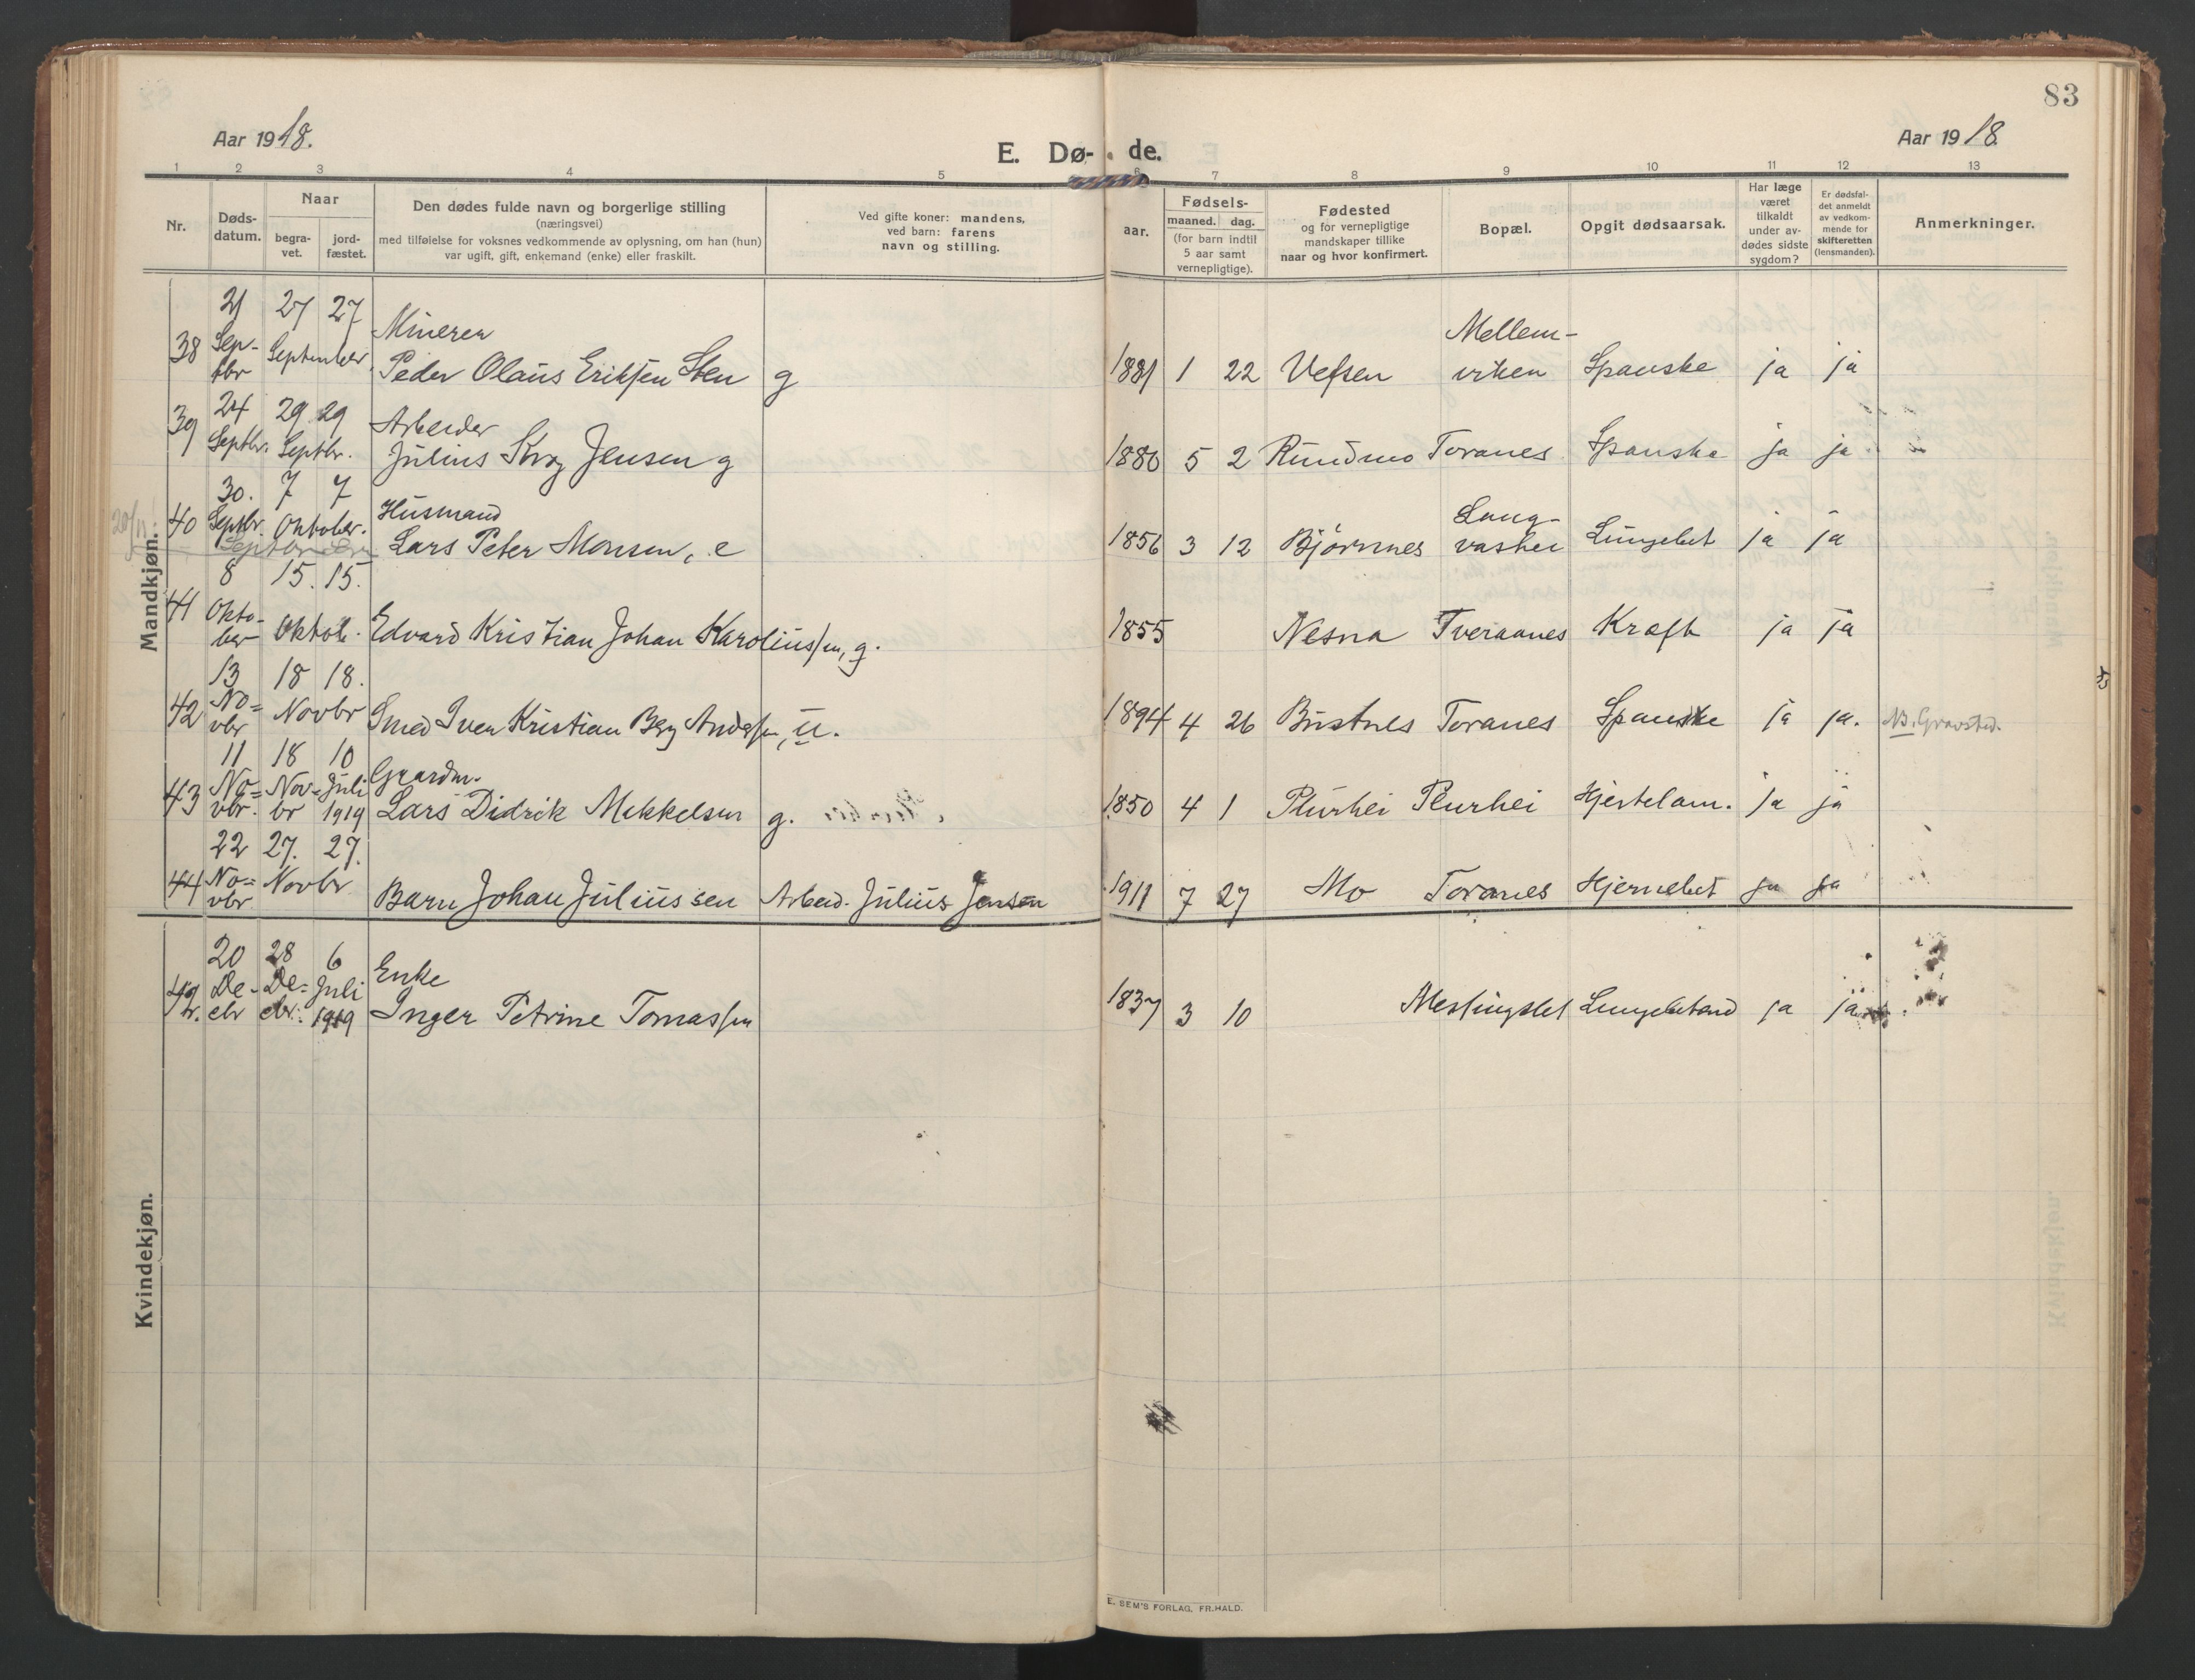 83
Aar 1918.
E. Dø- de.
Aar 1918
1 2 3 4 5 6 7 8 9 10 11 12 13
Nr.
Døds-
datum.
Naar
begra-
vet.
jord-
fæstet.
Den dødes fulde navn og borgerlige stilling
(næringsvei)
med tilføielse for voksnes vedkommende av oplysning, om han (hun)
var ugift, gift, enkemand (enke) eller fraskilt.
Ved gifte koner: mandens,
ved barn: farens
navn og stilling.
aar.
Fødsels-
maaned. dag.
(for barn indtil
5 aar samt
vernepligtige).
Fødested
og for vernepligtige
mandskaper tillike
naar og hvor konfirmert.
Bopæl.
Opgit dødsaarsak.
Har læge
været
tilkaldt
under av-
dødes sidste
sygdom?
Er dødsfal-
det anmeldt
av vedkom-
mende for
skifteretten
(lensmanden).
Anmerkninger.
Mandkjøn.
21 27 27
Minerer Mellem-
38 Sep- September
tbr Peder Olaus Eriksen Sten g 1881 1 22 Vefsen viken Spanske ja ja
24 29 29 Arbeider
39 Septbr. Septbr. Julius Skog Jensen g 1880 5 2 Rundmo Toranes Spanske ja ja
30. 7 7 Husmand Lang-
40 Septbr. Oktober. Lars Peter Monsen, e 1856 3 12 Bjørnnes vashei Lungebet ja ja
8 15. 15.
41 Okto-
ber Oktob. Edvard Kristian Johan Karoliussen, g. 1855 Nesna Tveraanes Kræft ja ja
13 18 18.
42 No=
vbr Novbr Smed Iver Kristian Berg Anderssen, u. 1894 4 26 Bustnes Toranes Spanske ja ja. NB. Gravsted.
11 18 10 Gaardm.
43 No=
vbr. Nov=
br Juli
1919 Lars Didrik Mikkelsen g. 1850 4 1 Plurhei Plurhei Hjertelam. ja ja
22 27. 27.
44 No=
vbr Novbr Barn Johan Juliussen Arbeid. Julius Jensen 1911 7 27 Mo Toranes Hjernebet ja ja
Kvindekjøn.
20 28 6 Enke
De-
cbr De=
cbr. Juli
1919 Inger Petrine Tomassen 1837 3 10 Mestingslet Lungebetænd ja ja
E. SEM'S FORLAG, FR.HALD.